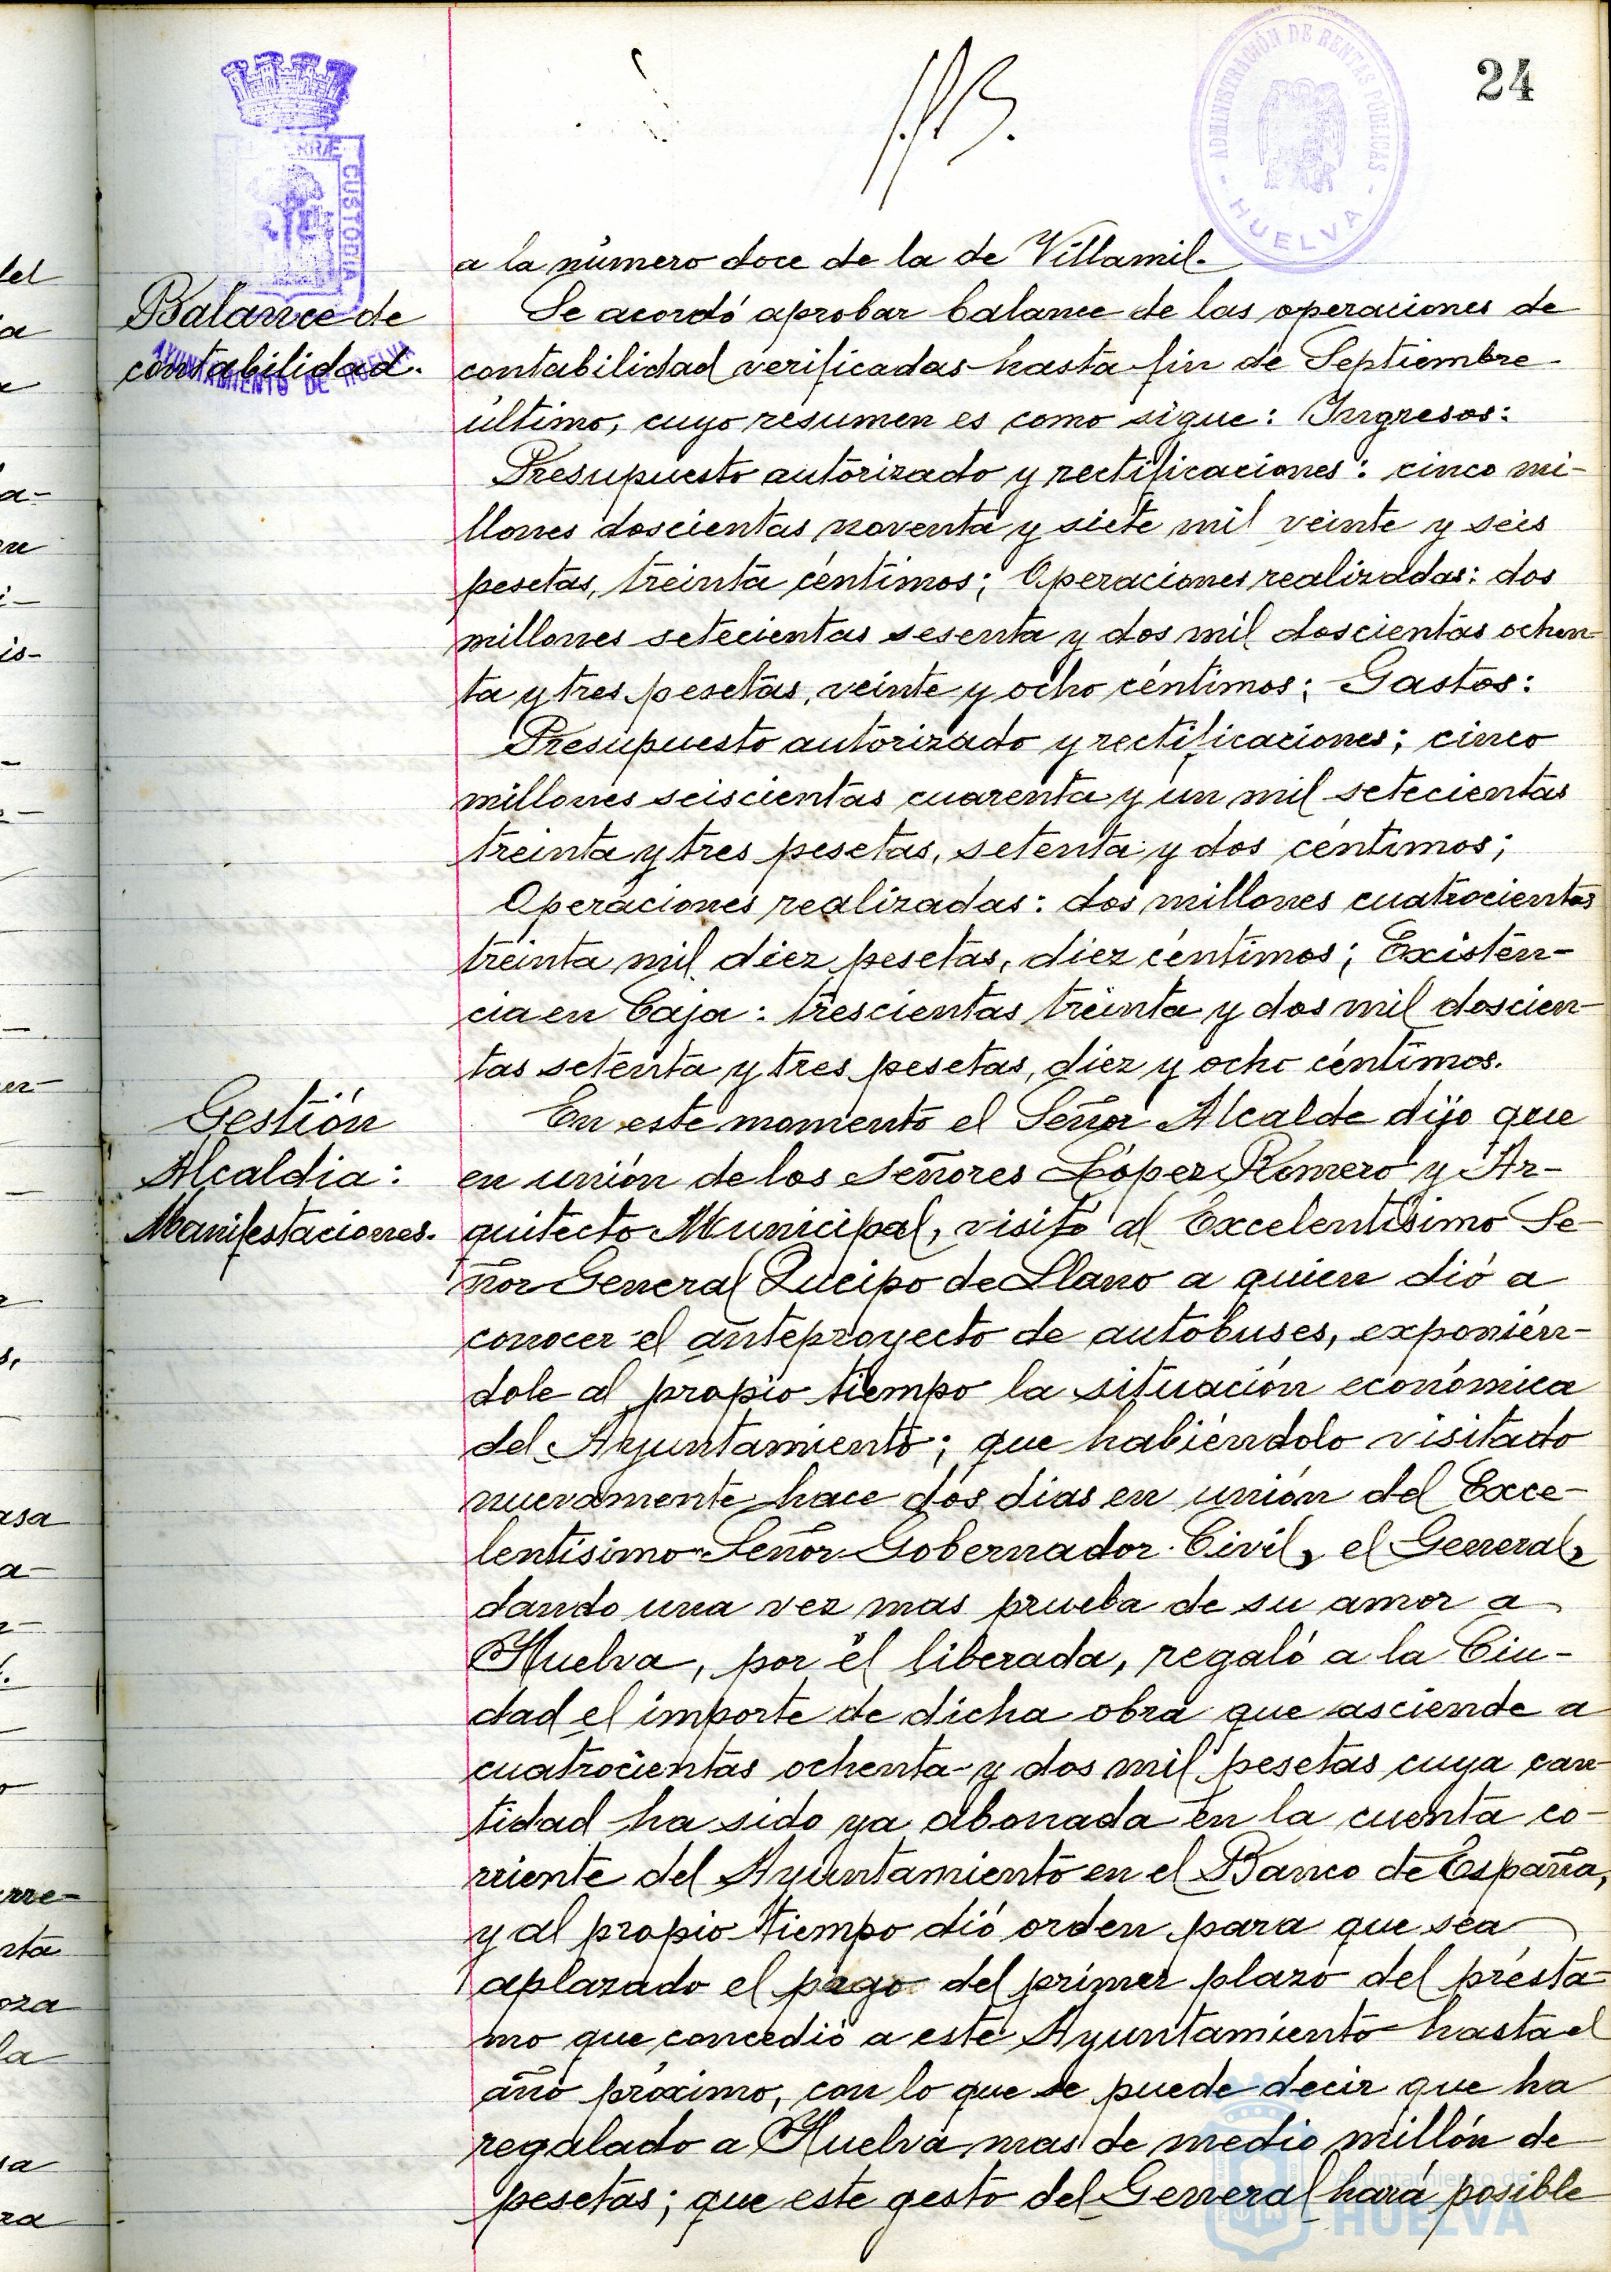 24
ADMINISTRACIÓN DE RENTAS PÚBLICAS
- HUELVA -
CUSTODIA
AYUNTAMIENTO DE HUELVA
a la número doce de la de Villamil.
Balance de
contabilidad.
Se acordó aprobar balance de las operaciones de
contabilidad verificadas hasta fin de Septiembre
último, cuyo resumen es como sigue: Ingresos:
Presupuesto autorizado y rectificaciones: cinco mi-
llones doscientas noventa y siete mil veinte y seis
pesetas, treinta céntimos; Operaciones realizadas: dos
millones setecientas sesenta y dos mil doscientas ochen-
ta y tres pesetas, veinte y ocho céntimos; Gastos:
Presupuesto autorizado y rectificaciones; cinco
millones seiscientas cuarenta y un mil setecientas
treinta y tres pesetas, setenta y dos céntimos;
Operaciones realizadas: dos millones cuatrocientas
treinta mil diez pesetas, diez céntimos; Existen-
cia en Caja: trescientas treinta y dos mil doscien-
tas setenta y tres pesetas, diez y ocho céntimos.
Gestión
Alcaldia:
Manifestaciones.
En este momento el Señor Alcalde dijo que
en unión de los Señores López Romero y Ar-
quitecto Municipal, visitó al Excelentísimo Se-
ñor General Queipo de Llano a quien dió a
conocer el anteproyecto de autobuses, exponién-
dole al propio tiempo la situación económica
del Ayuntamiento; que habiéndolo visitado
nuevamente hace dos dias en unión del Exce-
lentísimo Señor Gobernador Civil, el General,
dando una vez mas prueba de su amor a
Huelva, por él liberada, regaló a la Ciu-
dad el importe de dicha obra que asciende a
cuatrocientas ochenta y dos mil pesetas cuya can-
tidad ha sido ya abonada en la cuenta co-
rriente del Ayuntamiento en el Banco de España,
y al propio tiempo dió orden para que sea
aplazado el pago del primer plazo del présta-
mo que concedió a este Ayuntamiento hasta el
año próximo, con lo que se puede decir que ha
regalado a Huelva mas de medio millón de
pesetas; que este gesto del General hará posible
Ayuntamiento de
HUELVA